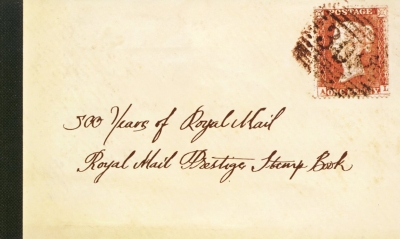 500 Years of Royal Mail
Royal Mail Prestige Stamp Book
POSTAGE